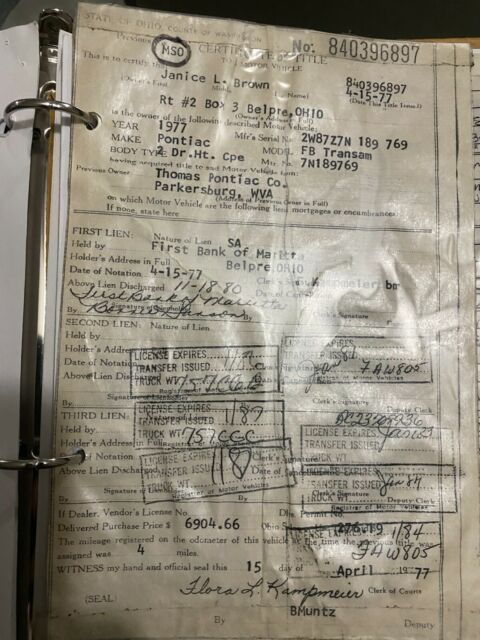 STATE OF OHIO, COUNTY OF WASHINGTON
Previous
MSO
CERTIFICATE OF TITLE
No: 840396897
TO A MOTOR VEHICLE
This is to certify that
Janice L. Brown
840396897
(Owner's First Middle Last Name)
4-15-77
(Date This Title Issued)
Rt #2 Box 3 Belpre,OHIO
(Owner's Address in Full)
is the owner of the following described Motor Vehicle:
YEAR 1977
Mfr's Serial No. 2W87Z7N 189 769
MAKE Pontiac
MODEL FB Transam
BODY TYPE 2 Dr.Ht. Cpe
Mtr. No. 7N189769
having acquired title to said Motor Vehicle from:
Previous Owner
Thomas Pontiac Co.
Parkersburg, WVA
(Address of Previous Owner in Full)
on which Motor Vehicle are the following liens mortgages or encumbrances:
If none, state here
FIRST LIEN: Nature of Lien SA
Held by First Bank of Maritta
Holder's Address in Full Belpre,OHIO
Date of Notation 4-15-77
Clerk's Signature Kampmeier bm
Above Lien Discharged 11-18-80
First Bank of Marietta
Signature of Lienholder
Clerk's Signature
By
By
SECOND LIEN: Nature of Lien
Held by
Holder's Address
Date of Notation
Above Lien Discharged
LICENSE EXPIRES
TRANSFER ISSUED
TRUCK WT
Registrar of Motor Vehicles
LICENSE EXPIRES
TRANSFER ISSUED
FAW805
Motor Vehicles
Signature of Lienholder
Clerk's Signature
Deputy Clerk
THIRD LIEN:
Held by
Holder's Address in
of Notation
Above Lien Discharged
LICENSE EXPIRES 1/87
TRANSFER ISSUED
TRUCK WT 757CCC
TRANSFER ISSUED
LICENSE EXPIRES
TRANSFER ISSUED
TRUCK WT.
Registrar of Motor Vehicles
LICENSE EXPIRES
TRANSFER ISSUED Jan 84
TRUCK WT.
Registrar of Motor Vehicles
Clerk's Signature
Deputy Clerk
Signature of Lienholder
By
By
If Dealer, Vendor's License No.
Delivered Purchase Price $ 6904.66
The mileage registered on the odometer of this vehicle at the time the previous title was
assigned was 4 miles.
1/84
FAW805
WITNESS my hand and official seal this 15 day of April 1977
Flora L. Kampmeier Clerk of Courts
(SEAL)
BMuntz
By
Deputy